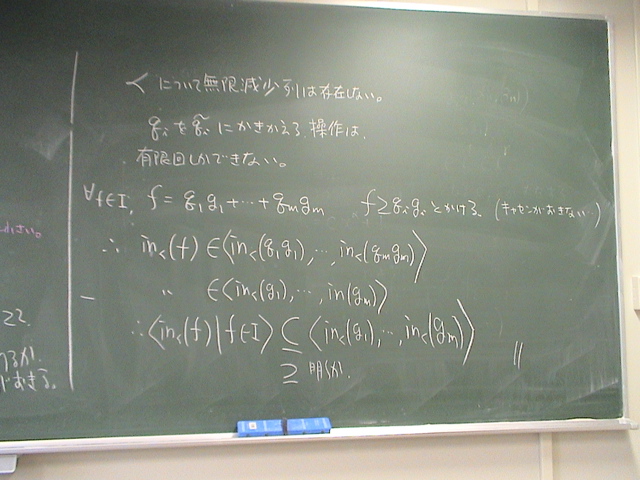 < について無限減少列は存在しない。
q_i を q̃_i にかきかえる 操作は、
有限回しかできない。
∀f∈I, f = q_1g_1 + … + q_mg_m f ≥ q_ig_i とかける。 (キャセンがおきない…)
∴ in_<(f) ∈ ⟨in_<(q_1g_1), …, in_<(q_mg_m)⟩
〃 ∈ ⟨in_<(g_1), …, in(g_m)⟩
∴ ⟨in_<(f) | f∈I⟩ ⊆ ⟨in_<(g_1), …, in_<(g_m)⟩ //
⊇ 明らか.
ださい。
22.
るか.
おきる。